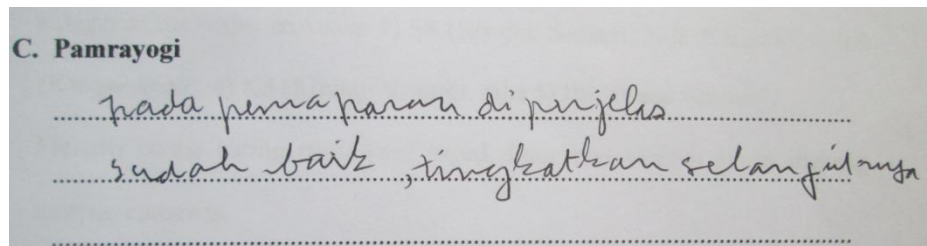 C. Pamrayogi
pada pemaparan diperjelas
sudah baik, tingkatkan selanjutnya